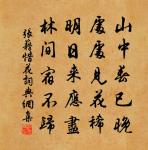 山中春已晚
處處見花稀
明日來應盡
林間宿不歸
張籍惜花詞典網集